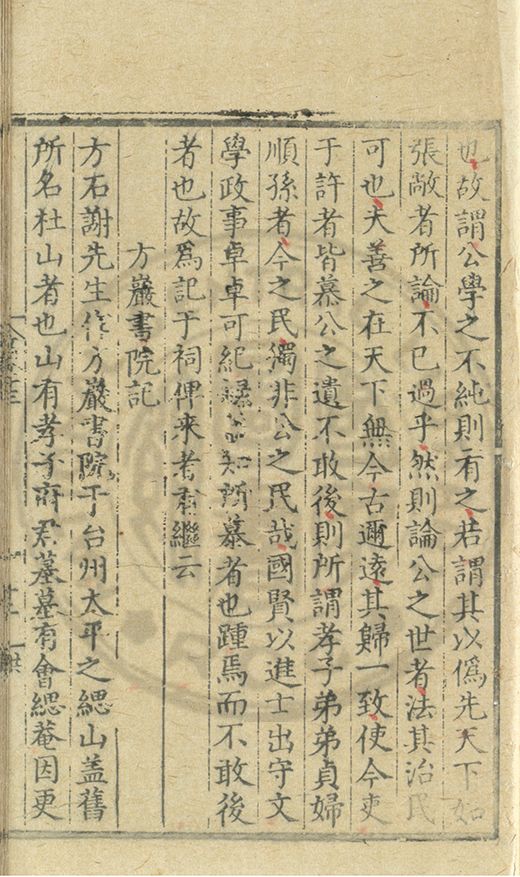 也故謂公學之不純則有之若謂其以偽先天下如
張敞者所論不已過乎然則論公之世者法其治民
可也夫善之在天下無今古邇逺其歸一致使今吏
于許者皆慕公之遺不敢後則所謂孝子弟弟貞婦
順孫者今之民獨非公之民哉國賢以進士出守文
學政事卓卓可紀知所慕者也踵焉而不敢後
者也故爲記于祠俾來者有繼云
方巖書院記
方石謝先生作方巖書院于台州太平之緦山盖舊
所名杜山者也山有孝子府君墓墓有會緦菴因更